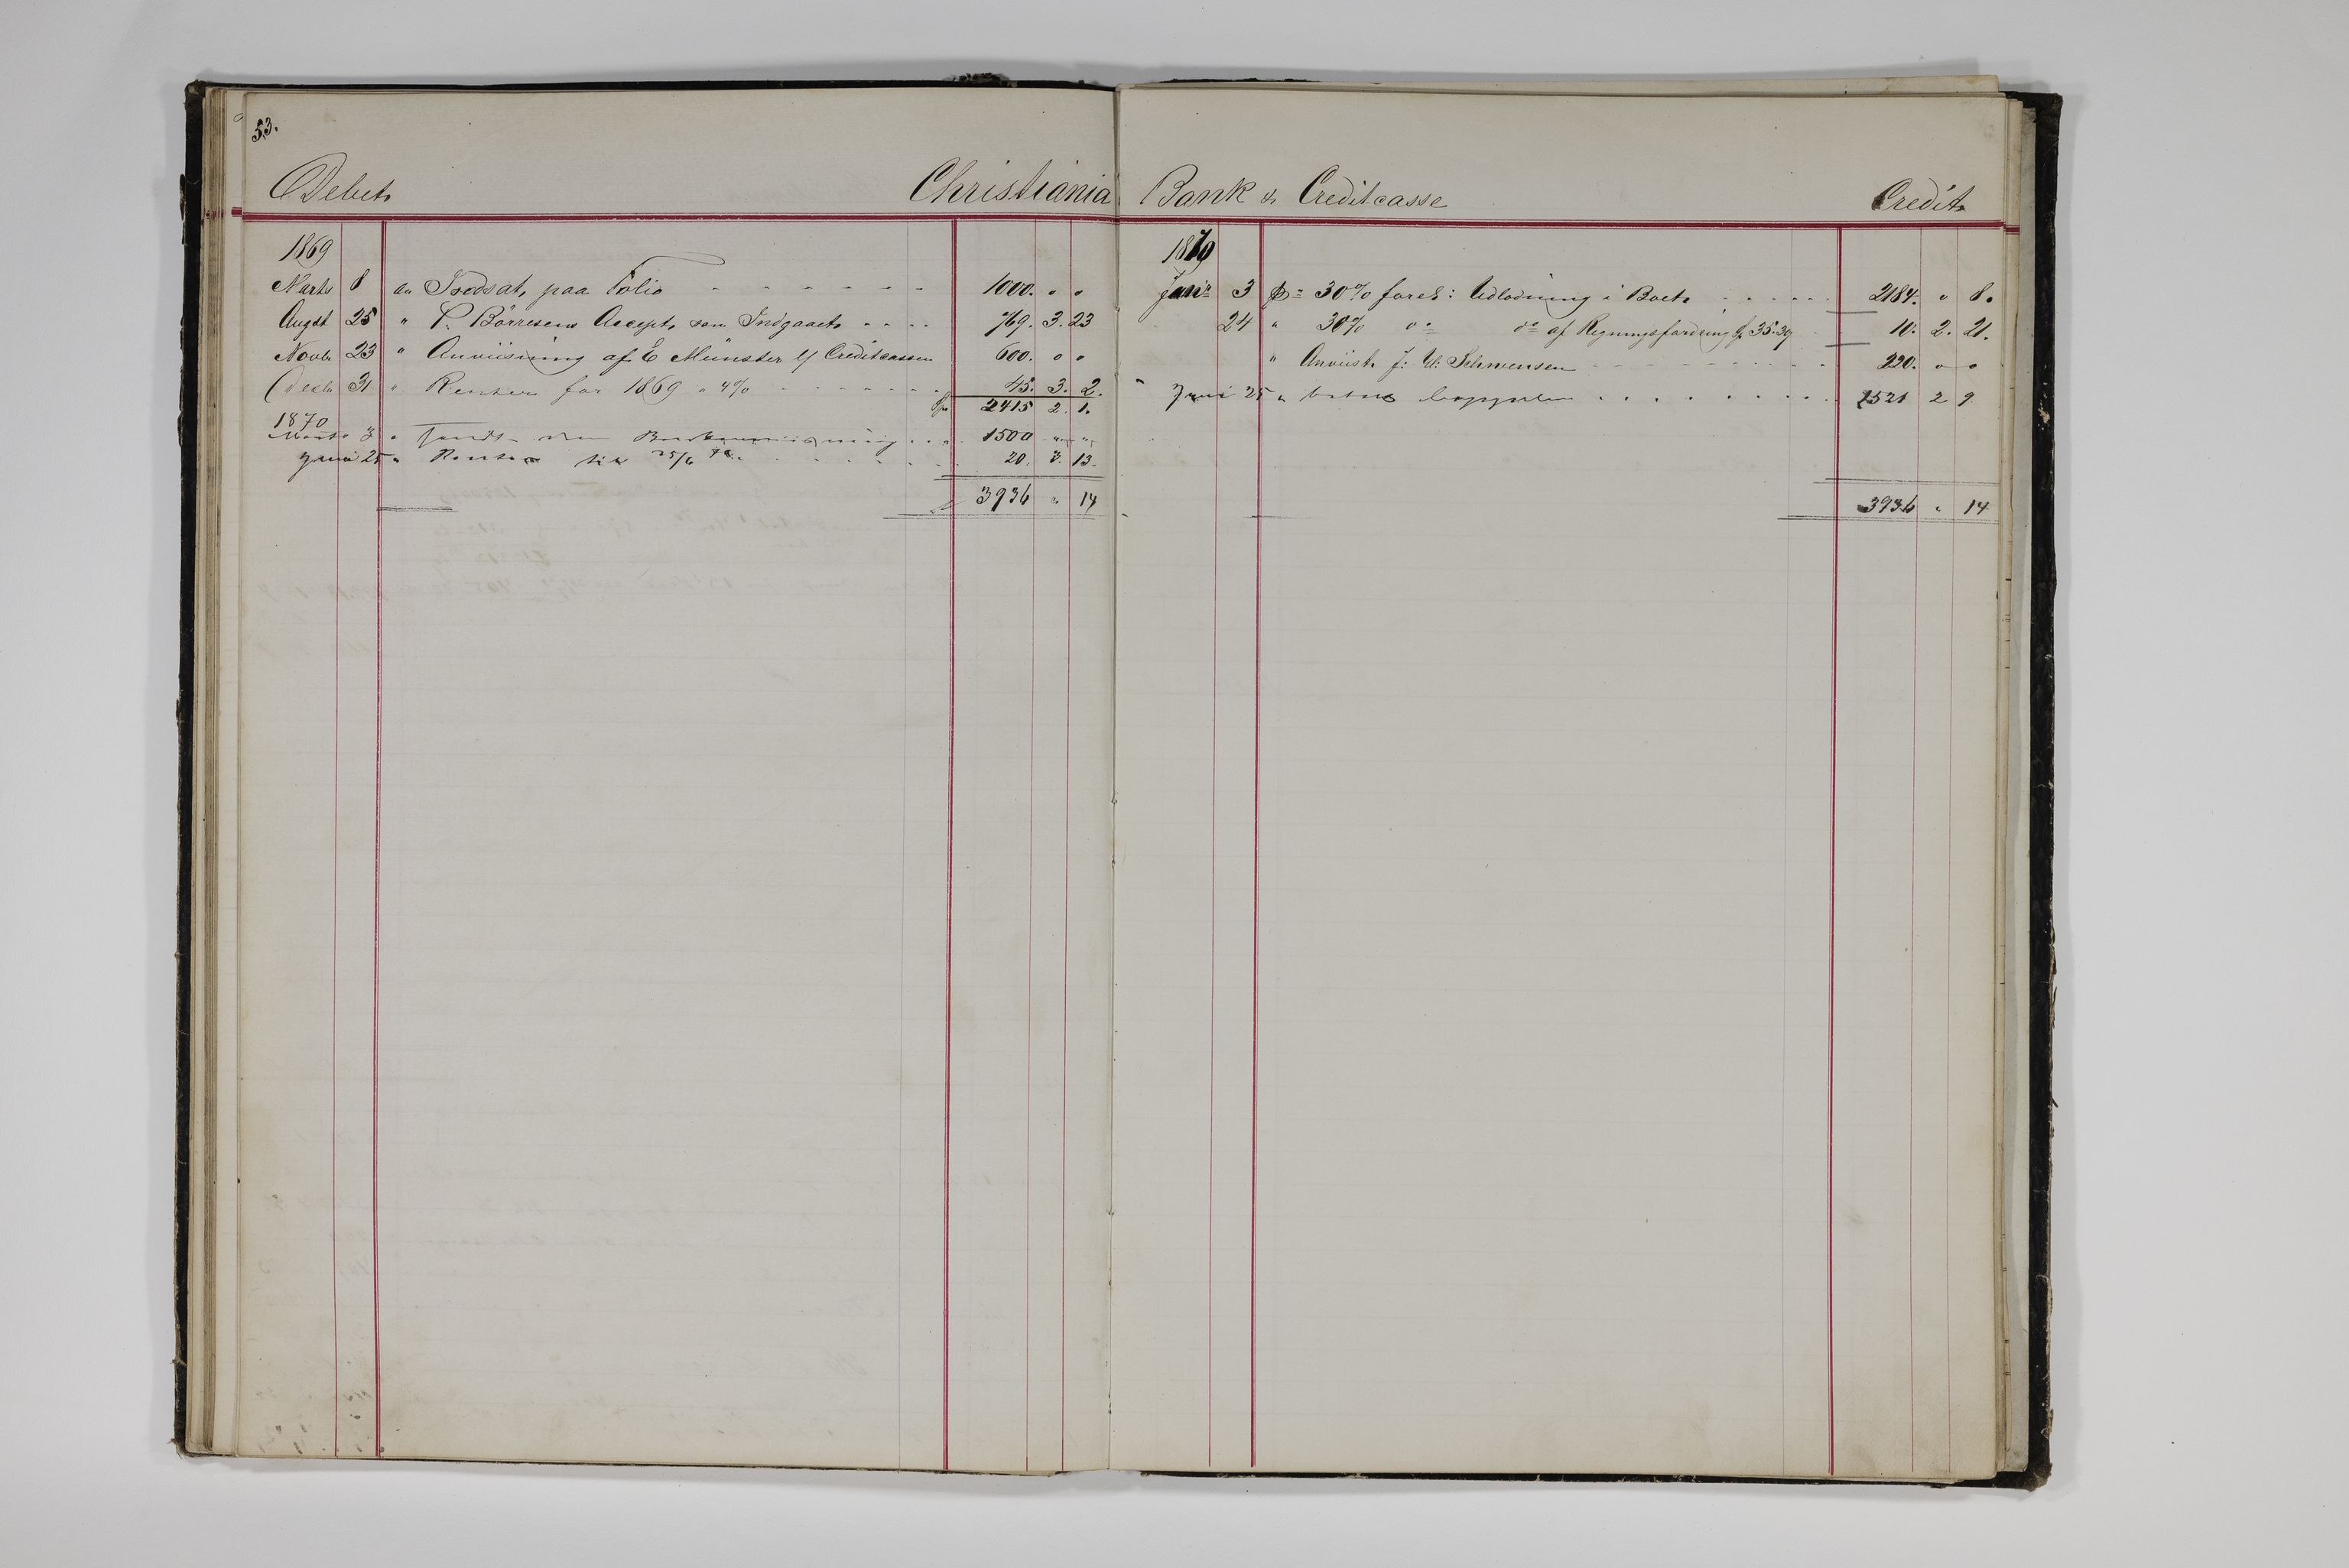 53.
Debet Christiania Bank & Creditcasse Credit
1869
Marts 8 an Indsat paa Folio 1000. " "
Augst 25 " P. Börresens Accept, som Indgaaet 769. 3. 23
Novb. 23 " Anviisning af E Münster Creditcassen 600. " "
Decb. 31 " Renter for 1869 a 4% 45. 3. 2.
Spd 2415 2. 1.
1870
Marts 3 " 1500 " "
Juni 25 " Renter til 25/6 70. 20. 3. 13.
3936 " 14
1870
Janr 3 pr 30% forel: Udlodning i Boet 2184. " 8.
24 " 30% do do af Regningsfordring 35.39 10. 2. 21.
" Anviist J: W: Schwensen 220. " "
Juni 25 " 1521 2 9
3936 " 14